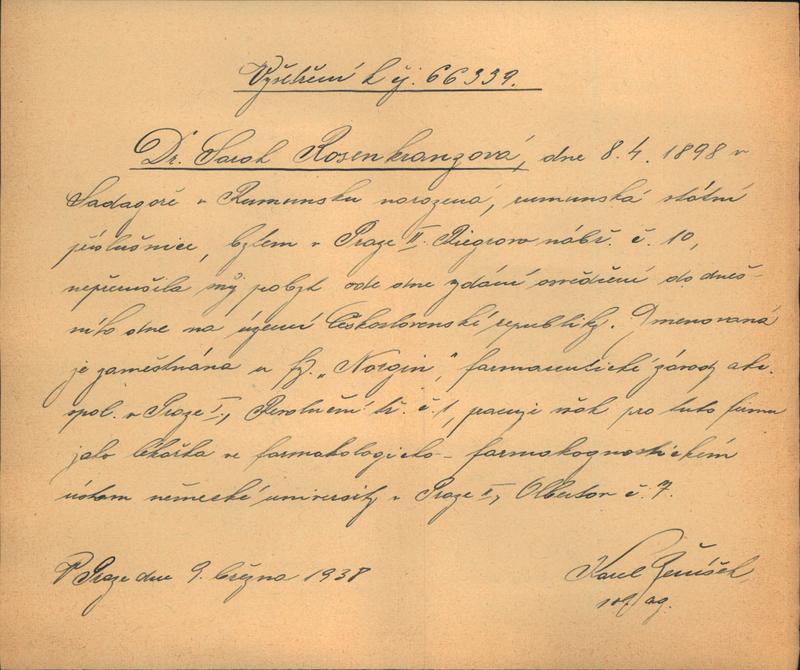 Vyšetření k čj. 66339.
Dr. Sarah Rosenkranzová, dne 8.4. 1898 v
Sadagóře v Rumunsku narozená, rumunská státní
příslušnice, bytem v Praze II. Riegrovo nábř. č. 10,
nepřerušila svůj pobyt ode dne vydání osvědčení do dneš-
ního dne na území Československé republiky. Jmenovaná
je zaměstnána u fy. „Norgin", farmaceutické závody akc.
spol. v Praze I., Revoluční tř. č. 1, pracuje však pro tuto firmu
jako lékařka ve farmakologicko-farmakognostickém
ústavu německé university v Praze II., Albertov č. 7.
V Praze dne 9. března 1938
Karel